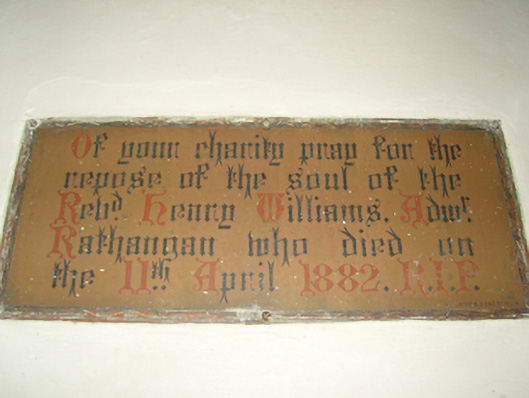 Of your charity pray for the
repose of the soul of the
Revd. Henry Williams. Admr.
Rathangan who died on
the 11th April 1882. R.I.P.